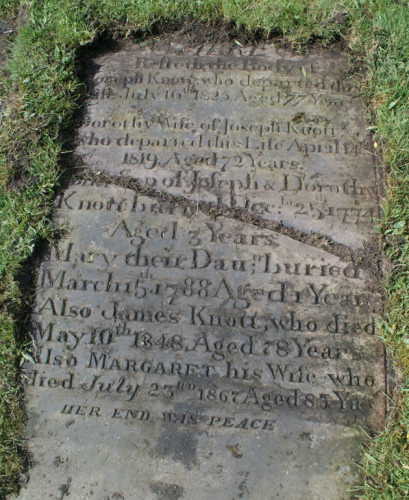 Resteth the Body of
Joseph Knott, who departed this
Life July 10th 1825 Aged 77 Years
Dorothy Wife of Joseph Knott
who departed this Life April 14th
1819, Aged 72 Years.
Son of Joseph & Dorothy
Knott buried Dec. 25th 1774
Aged 3 Years
Mary their Daur. buried
March 15th 1788 Aged 1 Year
Also James Knott, who died
May 10th 1848, Aged 78 Years
Also MARGARET his Wife who
died July 23rd 1867 Aged 85 Yrs
HER END WAS PEACE